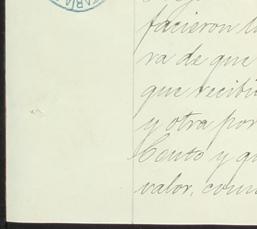 TARIA
facieron
ra de que
que recibi
y otra por
Ciento y qu
valor, como